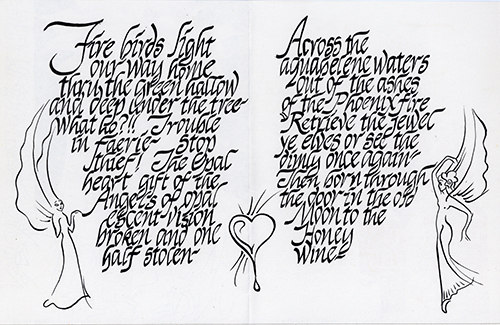 Fire birds light
our way home
thru the green hallow
and deep under the tree-
what ho?!! Trouble
in Faerie- Stop
thief! The Opal
heart gift of the
Angels of opal
escent vision
broken and one
half stolen-
Across the
waters
-out of the ashes
of the Phoenix fire
Retrieve the jewel
ye elves or see the
once again-
Then born through
the door in the old
Moon to the
Honey
Wine-